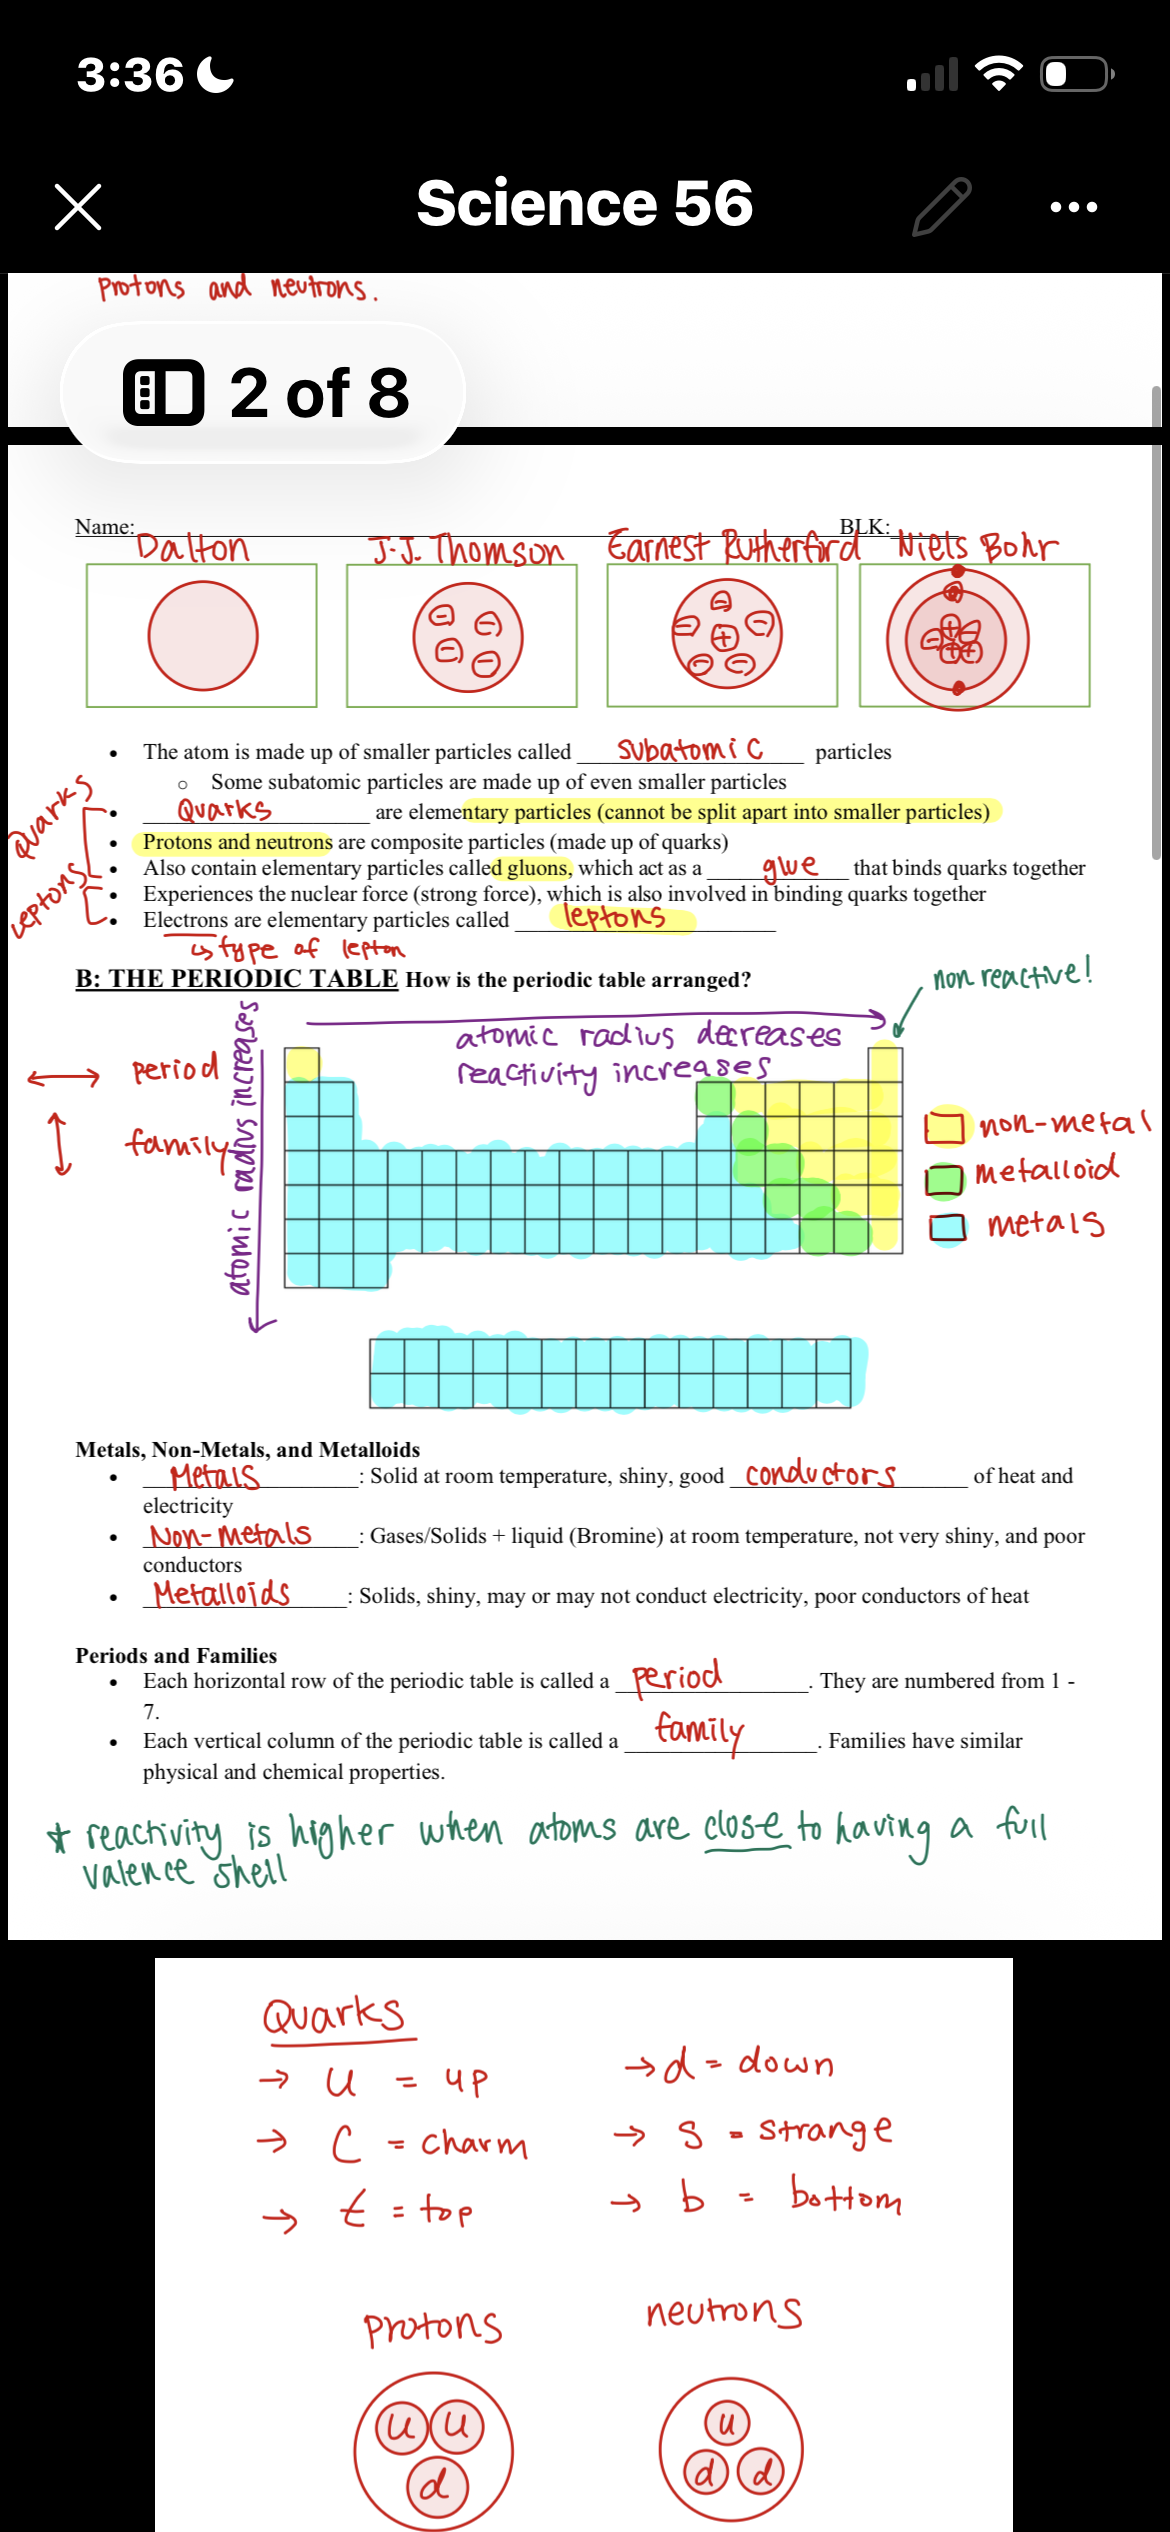 3:36
Science 56
Protons and neutrons.
2 of 8
Name: BLK:
Dalton J.J. Thomson Earnest Rutherford Niels Bohr
The atom is made up of smaller particles called subatomic particles
Some subatomic particles are made up of even smaller particles
Quarks are elementary particles (cannot be split apart into smaller particles)
Protons and neutrons are composite particles (made up of quarks)
Also contain elementary particles called gluons, which act as a glue that binds quarks together
Experiences the nuclear force (strong force), which is also involved in binding quarks together
Electrons are elementary particles called leptons
Quarks
leptons
↳ type of lepton
B: THE PERIODIC TABLE How is the periodic table arranged?
non reactive!
atomic radius decreases
reactivity increases
period
family
atomic radius increases
non-metal
metalloid
metals
Metals, Non-Metals, and Metalloids
Metals: Solid at room temperature, shiny, good conductors of heat and
electricity
Non-metals: Gases/Solids + liquid (Bromine) at room temperature, not very shiny, and poor
conductors
Metalloids: Solids, shiny, may or may not conduct electricity, poor conductors of heat
Periods and Families
Each horizontal row of the periodic table is called a period. They are numbered from 1 -
7.
Each vertical column of the periodic table is called a family. Families have similar
physical and chemical properties.
* reactivity is higher when atoms are close to having a full
valence shell
Quarks
→ u = up → d = down
→ c = charm → s = strange
→ t = top → b = bottom
protons neutrons
u u d
u d d